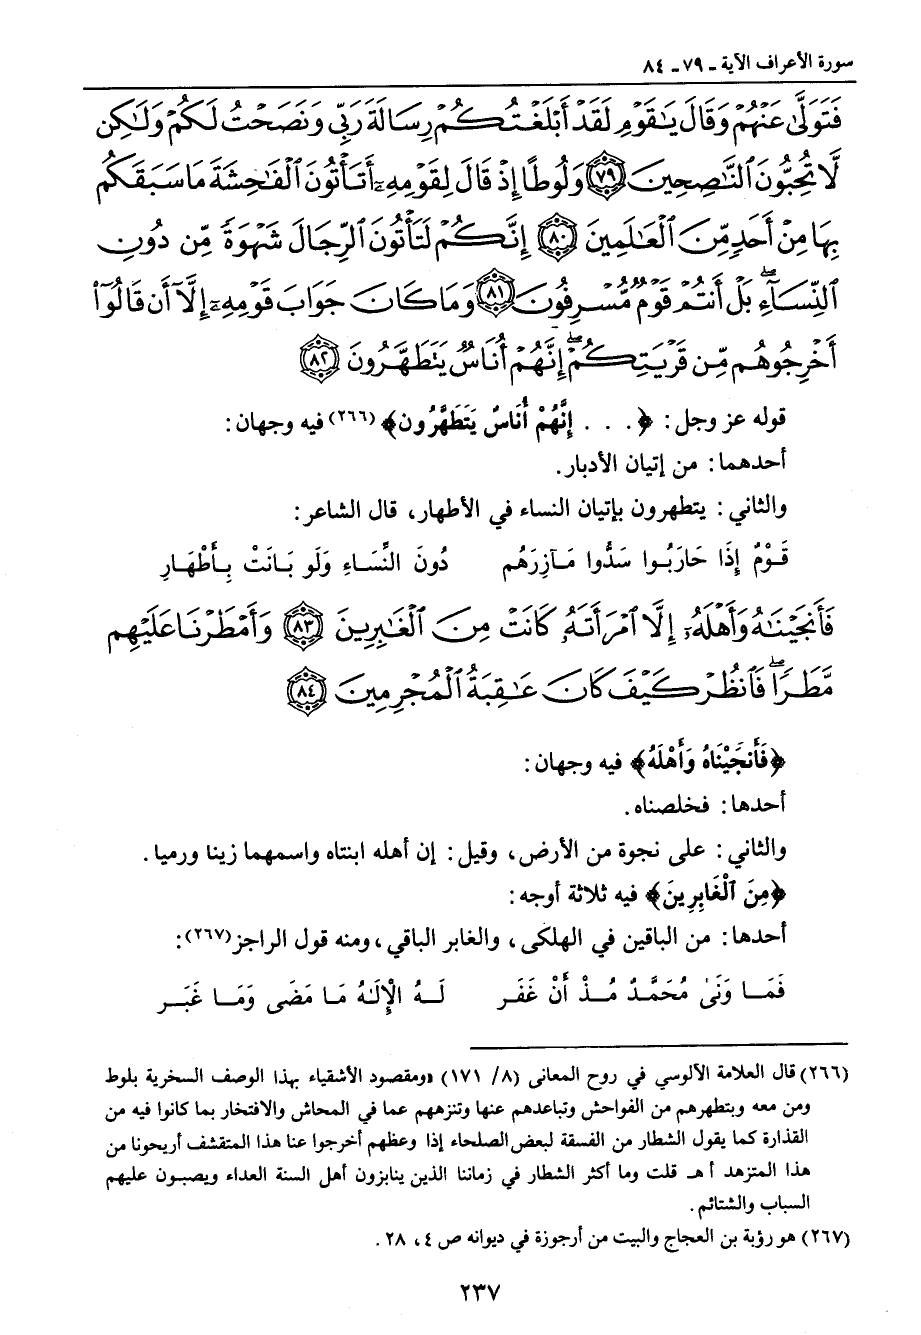 سورة الأعراف الآية ـ ٧٩ ـ ٨٤
فَتَوَلَّىٰ عَنْهُمْ وَقَالَ يَٰقَوْمِ لَقَدْ أَبْلَغْتُكُمْ رِسَالَةَ رَبِّى وَنَصَحْتُ لَكُمْ وَلَٰكِن
لَّا تُحِبُّونَ ٱلنَّٰصِحِينَ ٧٩ وَلُوطًا إِذْ قَالَ لِقَوْمِهِۦٓ أَتَأْتُونَ ٱلْفَٰحِشَةَ مَا سَبَقَكُم
بِهَا مِنْ أَحَدٍ مِّنَ ٱلْعَٰلَمِينَ ٨٠ إِنَّكُمْ لَتَأْتُونَ ٱلرِّجَالَ شَهْوَةً مِّن دُونِ
ٱلنِّسَآءِۚ بَلْ أَنتُمْ قَوْمٌ مُّسْرِفُونَ ٨١ وَمَا كَانَ جَوَابَ قَوْمِهِۦٓ إِلَّآ أَن قَالُوٓا۟
أَخْرِجُوهُم مِّن قَرْيَتِكُمْۖ إِنَّهُمْ أُنَاسٌ يَتَطَهَّرُونَ ٨٢
قوله عز وجل: ﴿. . . إِنَّهُمْ أُنَاسٌ يَتَطَهَّرُون﴾ (٢٦٦) فيه وجهان:
أحدهما: من إتيان الأدبار.
والثاني: يتطهرون بإتيان النساء في الأطهار، قال الشاعر:
قَوْمٌ إِذَا حَارَبُوا سَدُّوا مَآزِرَهُم دُونَ النِّسَاءِ وَلَو بَانَتْ بِأَطْهَارِ
فَأَنجَيْنَٰهُ وَأَهْلَهُۥٓ إِلَّا ٱمْرَأَتَهُۥ كَانَتْ مِنَ ٱلْغَٰبِرِينَ ٨٣ وَأَمْطَرْنَا عَلَيْهِم
مَّطَرًاۖ فَٱنظُرْ كَيْفَ كَانَ عَٰقِبَةُ ٱلْمُجْرِمِينَ ٨٤
﴿فَأَنجَيْنَاهُ وَأَهْلَهُ﴾ فيه وجهان:
أحدها: فخلصناه.
والثاني: على نجوة من الأرض، وقيل: إن أهله ابنتاه واسمهما زينا ورميا.
﴿مِنَ ٱلْغَابِرِينَ﴾ فيه ثلاثة أوجه:
أحدها: من الباقين في الهلكى، والغابر الباقي، ومنه قول الراجز(٢٦٧):
فَمَا وَنَىٰ مُحَمَّدٌ مُذْ أَنْ غَفَر لَهُ الْإِلَهُ مَا مَضَى وَمَا غَبَر
(٢٦٦) قال العلامة الآلوسي في روح المعانى (٨/ ١٧١) «ومقصود الأشقياء بهذا الوصف السخرية بلوط
ومن معه وبتطهرهم من الفواحش وتباعدهم عنها وتنزههم عما في المحاش والافتخار بما كانوا فيه من
القذارة كما يقول الشطار من الفسقة لبعض الصلحاء إذا وعظهم أخرجوا عنا هذا المتقشف أريحونا من
هذا المتزهد أ هـ قلت وما أكثر الشطار في زماننا الذين ينابزون أهل السنة العداء ويصبون عليهم
السباب والشتائم.
(٢٦٧) هو رؤبة بن العجاج والبيت من أرجوزة في ديوانه ص ٤، ٢٨.
٢٣٧